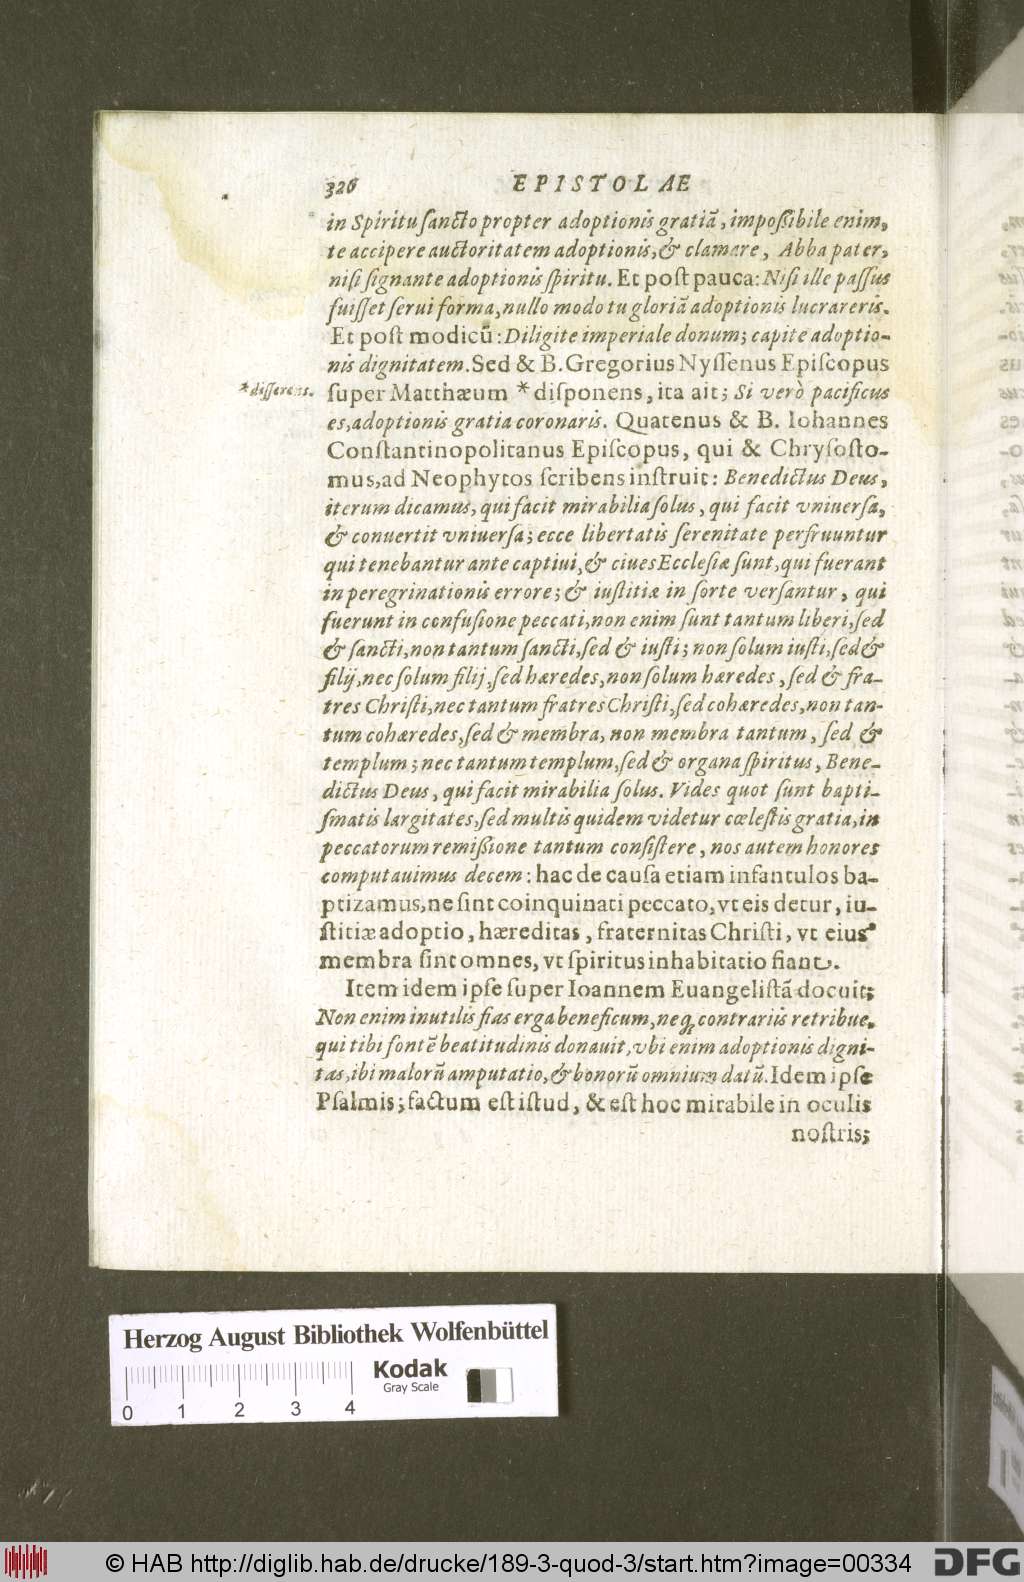 326 EPISTOLAE
in Spiritu ſancto propter adoptionis gratiã, impoßibile enim,
te accipere auctoritatem adoptionis, & clamare, Abba pater,
niſi ſignante adoptionis ſpiritu. Et poſt pauca: Niſi ille paſſus
fuiſſet ſerui forma, nullo modo tu gloriã adoptionis lucrareris.
Et poſt modicũ: Diligite imperiale donum; capite adoptio-
nis dignitatem. Sed & B. Gregorius Nyſſenus Epiſcopus
*diſſerens.
ſuper Matthæum * diſponens, ita ait; Si verò pacificus
es, adoptionis gratia coronaris. Quatenus & B. Iohannes
Conſtantinopolitanus Epiſcopus, qui & Chryſoſto-
mus, ad Neophytos ſcribens inſtruit: Benedictus Deus,
iterum dicamus, qui facit mirabilia ſolus, qui facit vniuerſa,
& conuertit vniuerſa; ecce libertatis ſerenitate perfruuntur
qui tenebantur ante captiui, & ciues Eccleſiæ ſunt, qui fuerant
in peregrinationis errore; & iuſtitiæ in ſorte verſantur, qui
fuerunt in confuſione peccati, non enim ſunt tantum liberi, ſed
& ſancti, non tantum ſancti, ſed & iuſti; non ſolum iuſti, ſed &
filij, nec ſolum filij, ſed hæredes, non ſolum hæredes, ſed & fra-
tres Chriſti, nec tantum fratres Chriſti, ſed cohæredes, non tan-
tum cohæredes, ſed & membra, non membra tantum, ſed &
templum; nec tantum templum, ſed & organa ſpiritus, Bene-
dictus Deus, qui facit mirabilia ſolus. Vides quot ſunt bapti-
ſmatis largitates, ſed multis quidem videtur cœleſtis gratia, in
peccatorum remißione tantum conſiſtere, nos autem honores
computauimus decem: hac de cauſa etiam infantulos ba-
ptizamus, ne ſint coinquinati peccato, vt eis detur, iu-
ſtitiæ adoptio, hæreditas, fraternitas Chriſti, vt eius
membra ſint omnes, vt ſpiritus inhabitatio fiant.
Item idem ipſe ſuper Ioannem Euangeliſtã docuit;
Non enim inutilis fias erga beneficum, neq; contrariis retribue,
qui tibi fontẽ beatitudinis donauit, vbi enim adoptionis digni-
tas, ibi malorũ amputatio, & bonorũ omnium datũ. Idem ipſe
Pſalmis; factum eſt iſtud, & eſt hoc mirabile in oculis
noſtris;
Herzog August Bibliothek Wolfenbüttel
Kodak
Gray Scale
0 1 2 3 4
© HAB http://diglib.hab.de/drucke/189-3-quod-3/start.htm?image=00334
DFG